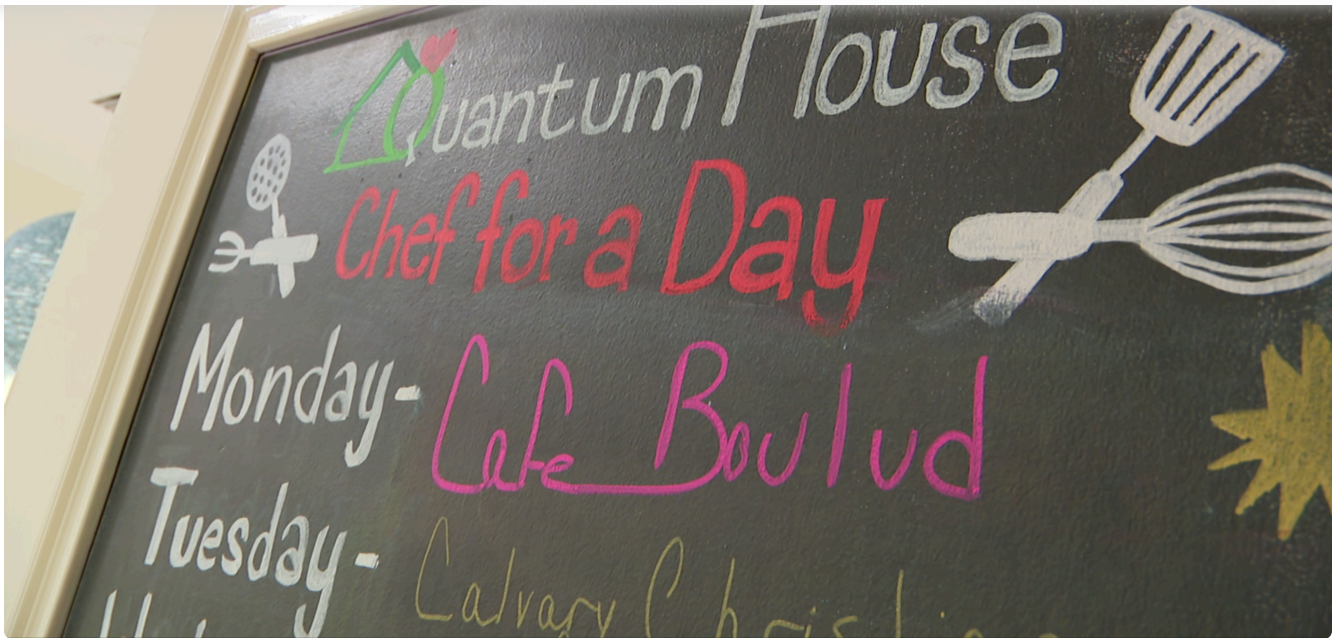 Quantum House
Chef for a Day
Monday- Cafe Boulud
Tuesday- Calvary